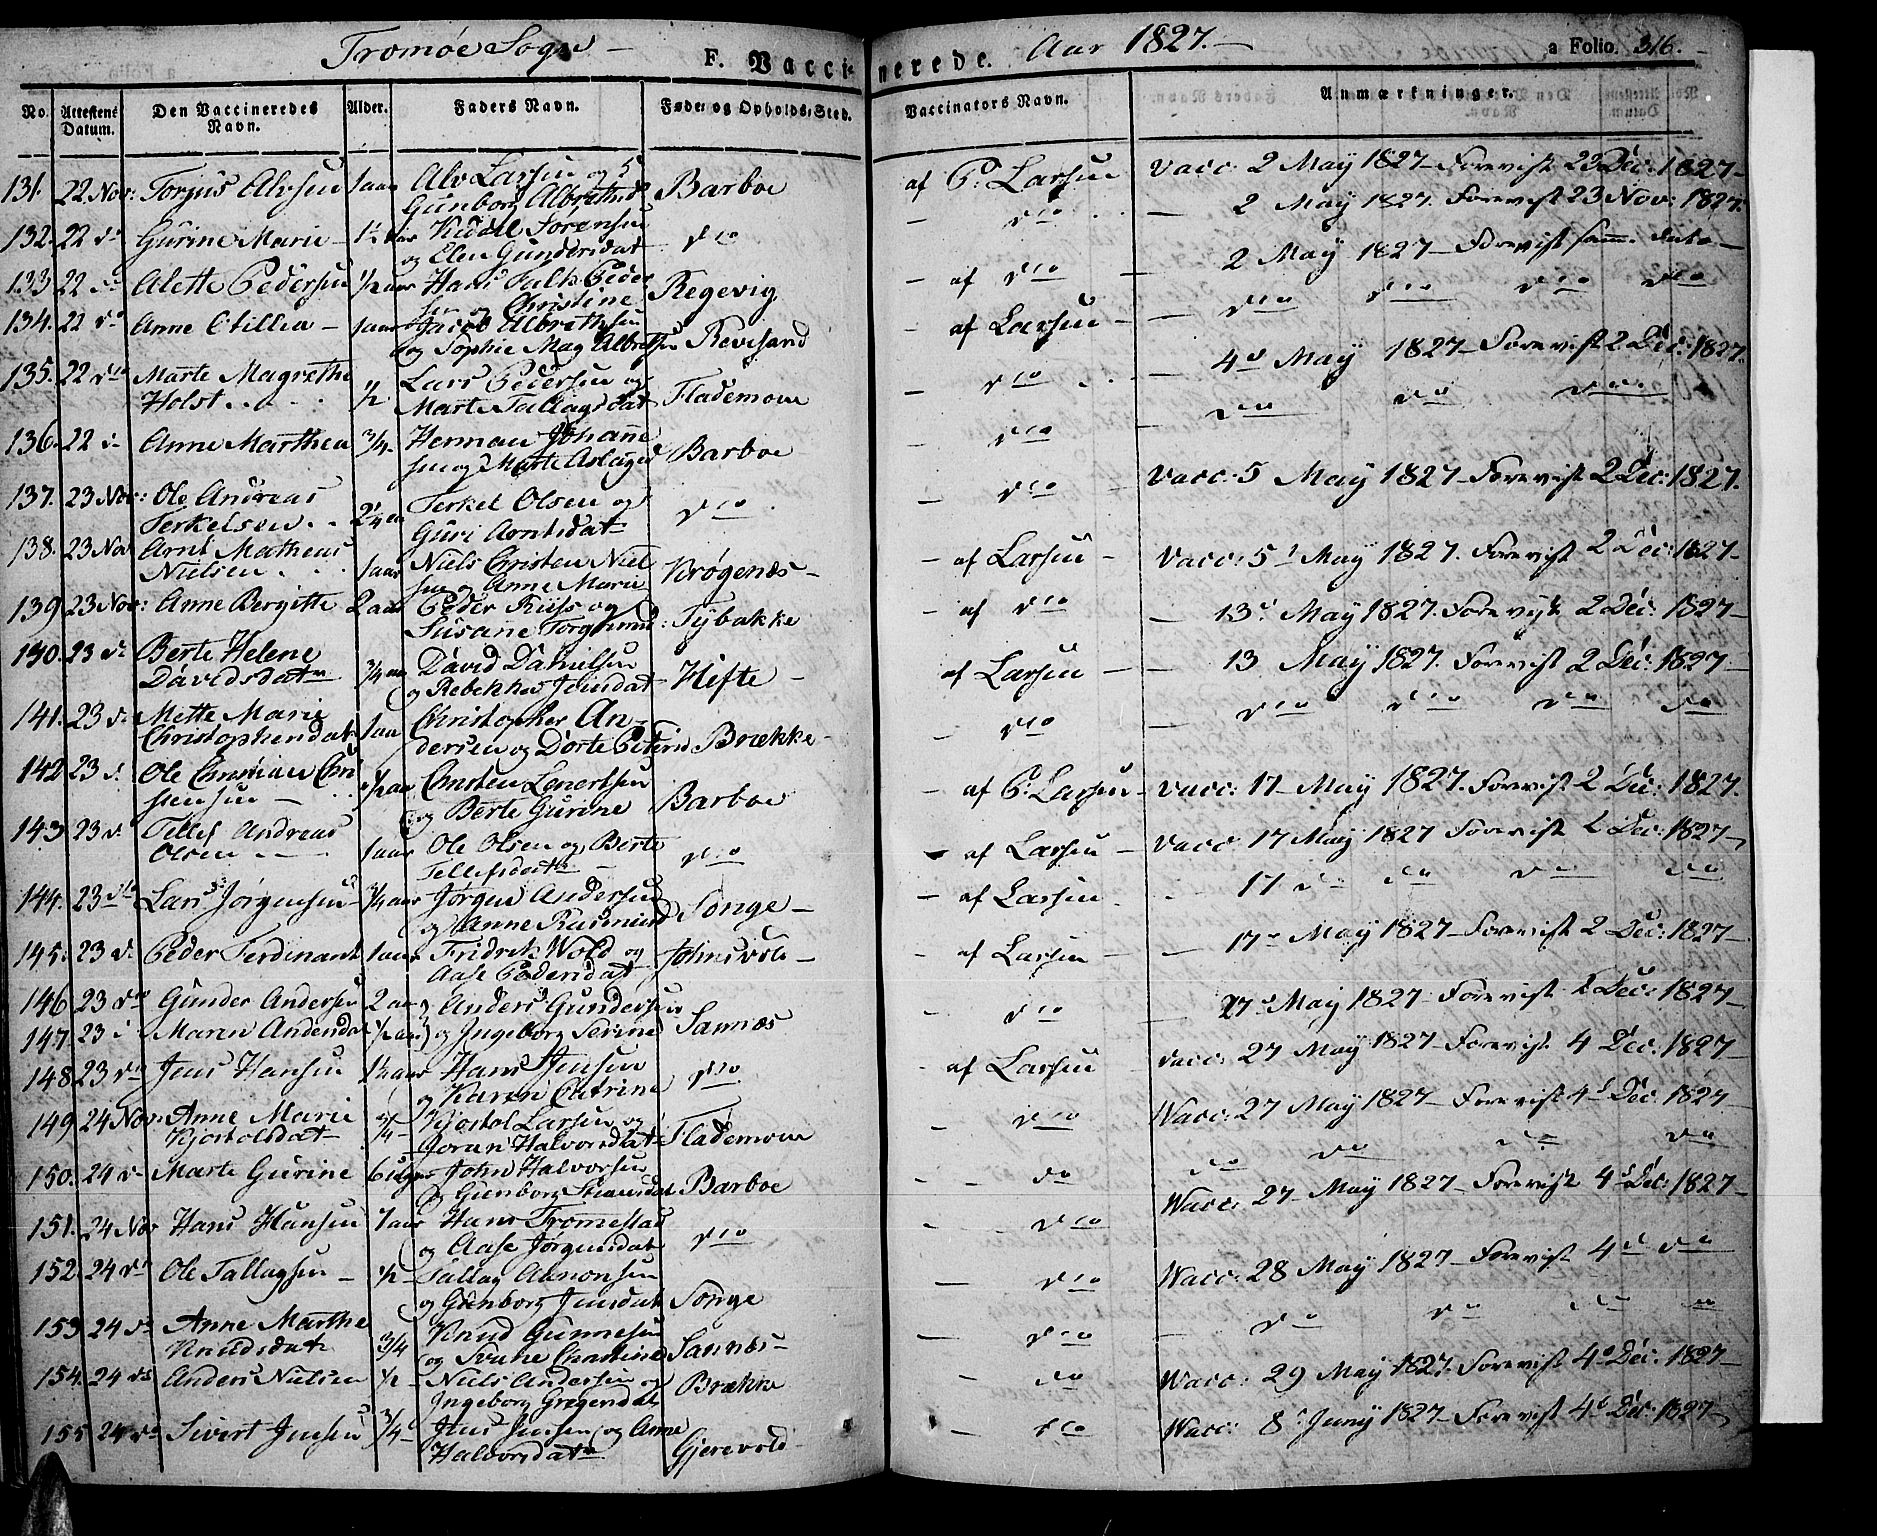 Tromøe Sogn — F. Vaccinerede. Aar 1827. — a Folio. 316.
No. Attestens Datum. Den Vaccineredes Navn. Alder. Faders Navn. Føde- og Opholds-Sted. Vaccinators Navn. Anmærkninger.
131. 22 Nov: Torjus Alvsen 1 aar Alv Larsen og Barboe af P: Larsen Vacc: 2 May 1827 – Forevist 23 Dec: 1827 –
Gunborg
132. 22 do Gurine Marie – Sørensen do – do – 2 May 1827. Forevist 23 Nov: 1827.
og Elen Gundersdat
133 22 do Alette Pedersen 1/2 aar Hans Falk Peder Regevig – af do – 2 May 1827 – Forevist samme Dato –
sen og Christine
134. 22 do Anne Otillia – 1 aar Jacob Albrethsen – af Larsen – do do do do
og Sophie Mag Revesand
135. 22 do Marte Magrethe 1/2 Lars Pedersen og Flademoen – do – 4de May 1827 – Forevist 2 Dec: 1827.
Holst Marte Tallagsdat
136. 22 do Anne Marthea 3/4 – Herman Johanne Barboe – do do do do
sen og Marte Aslagsd
137. 23 Nov: Ole Andreas 2 1/4 aar Terkel Olsen og do – do Vacc: 5 May 1827 – Forevist 2 Dec: 1827.
Terkelsen Guri Arntsdat
138. 23 Nov Arnt Matheus 1 aar Niels Christen Niel Krøgenæs – – af Larsen – Vacc: 5 May 1827. Forevist 2 Dec: 1827 –
Nielsen sen og Anne Marie
139 23 Nov: Anne Bergitte 2 aar Peder Russ og Tybakke – af do – 13 May 1827. Forevist 2 Dec: 1827 –
Susane
140. 23 do Berte Helene 3/4 aar David Danielsen Hifte – af Larsen – 13 May 1827. Forevist 2 Dec: 1827 –
Davidsdatr og Rebekke Jensdat
141. 23 do Mette Marie 1 aar Christopher An- – do – do do do do
Christophersdat dersen og Dorte Brække –
142 23 do Ole Christian Chri 1/2 aar Christen Lenertsen Barboe – af P: Larsen – Vacc: 17 May 1827. Forevist 2 Dec: 1827.
stensen – og Berte Gurine
143 23 do Tellef Andreas 1 aar Ole Olsen og Berte do – af Larsen – Vacc: 17 May 1827 Forevist 2 Dec: 1827 –
Olsen Tellefsdatr
144. 23 do Lars Jørgensen 3/4 aar Jørgen Andersen Songe – – af Larsen 17 do do do do
og Anne Rasmusd
145. 23 do Peder Ferdinant 1 aar Fridrik Wold og – af Larsen – 17 May 1827 – Forevist 2 Dec: 1827 –
Aase Pedersdat
146 23 do Gunder Andersen 2 aar Anders Gundersen – do 27 May 1827 – Forevist 2 Dec: 1827 –
147. 23 do Maren Andersdat 1/2 aar og Ingeborg Serine Sannæs
148 23 do Jens Hansen 1 1/2 aar Hans Jensen do – af Larsen Vacc: 27 May 1827 – Forevist 4 Dec: 1827 –
og Karen Catrine
149 24 Nov. Anne Marie 1/4 – Kjøstol Larsen og Flademoen do Vacc: 27 May 1827 – Forevist 4d Dec: 1827 –
Kjøstolsdat Joran Halvorsdat
150. 24 do Marte Gurine 6 uger John Halvorsen Barboe – do do do do do
og Gunborg
151. 24 Nov Hans Hansen 1 aar Hans Tromestad do – do Vacc: 27 May 1827 – Forevist 4d Dec: 1827 –
og Aase Jørgensdat
152. 24 do Ole Tallagsen – 1/2 – Tallag Aanonsen – do Vacc: 28 May 1827 – Forevist 4 do
og Gunborg Jensdat Songe
153. 24 do Anne Marthe 3/4 Knud Gunnesen Sannæs – – do – do do do do
Knudsdat og Christine
154. 24 do Anders Nielsen 1/2 – Niels Andersen og Brække – do Vacc: 29 May 1827. Forevist 4d Dec: 1827 –
Ingeborg Gregersdat
155 24 do Sivert Jensen 3/4 Jens Jensen og Anne Gjerevold – – do Vacc: 8 Juny 1827 – Forevist 4d Dec: 1827 –
Halvorsdatr